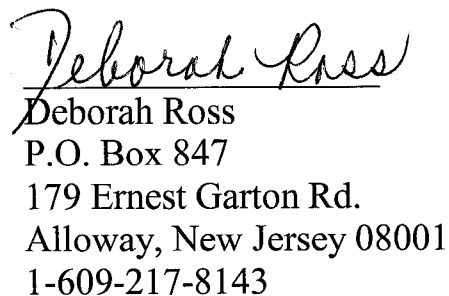 Deborah Ross
Deborah Ross
P.O. Box 847
179 Ernest Garton Rd.
Alloway, New Jersey 08001
1-609-217-8143